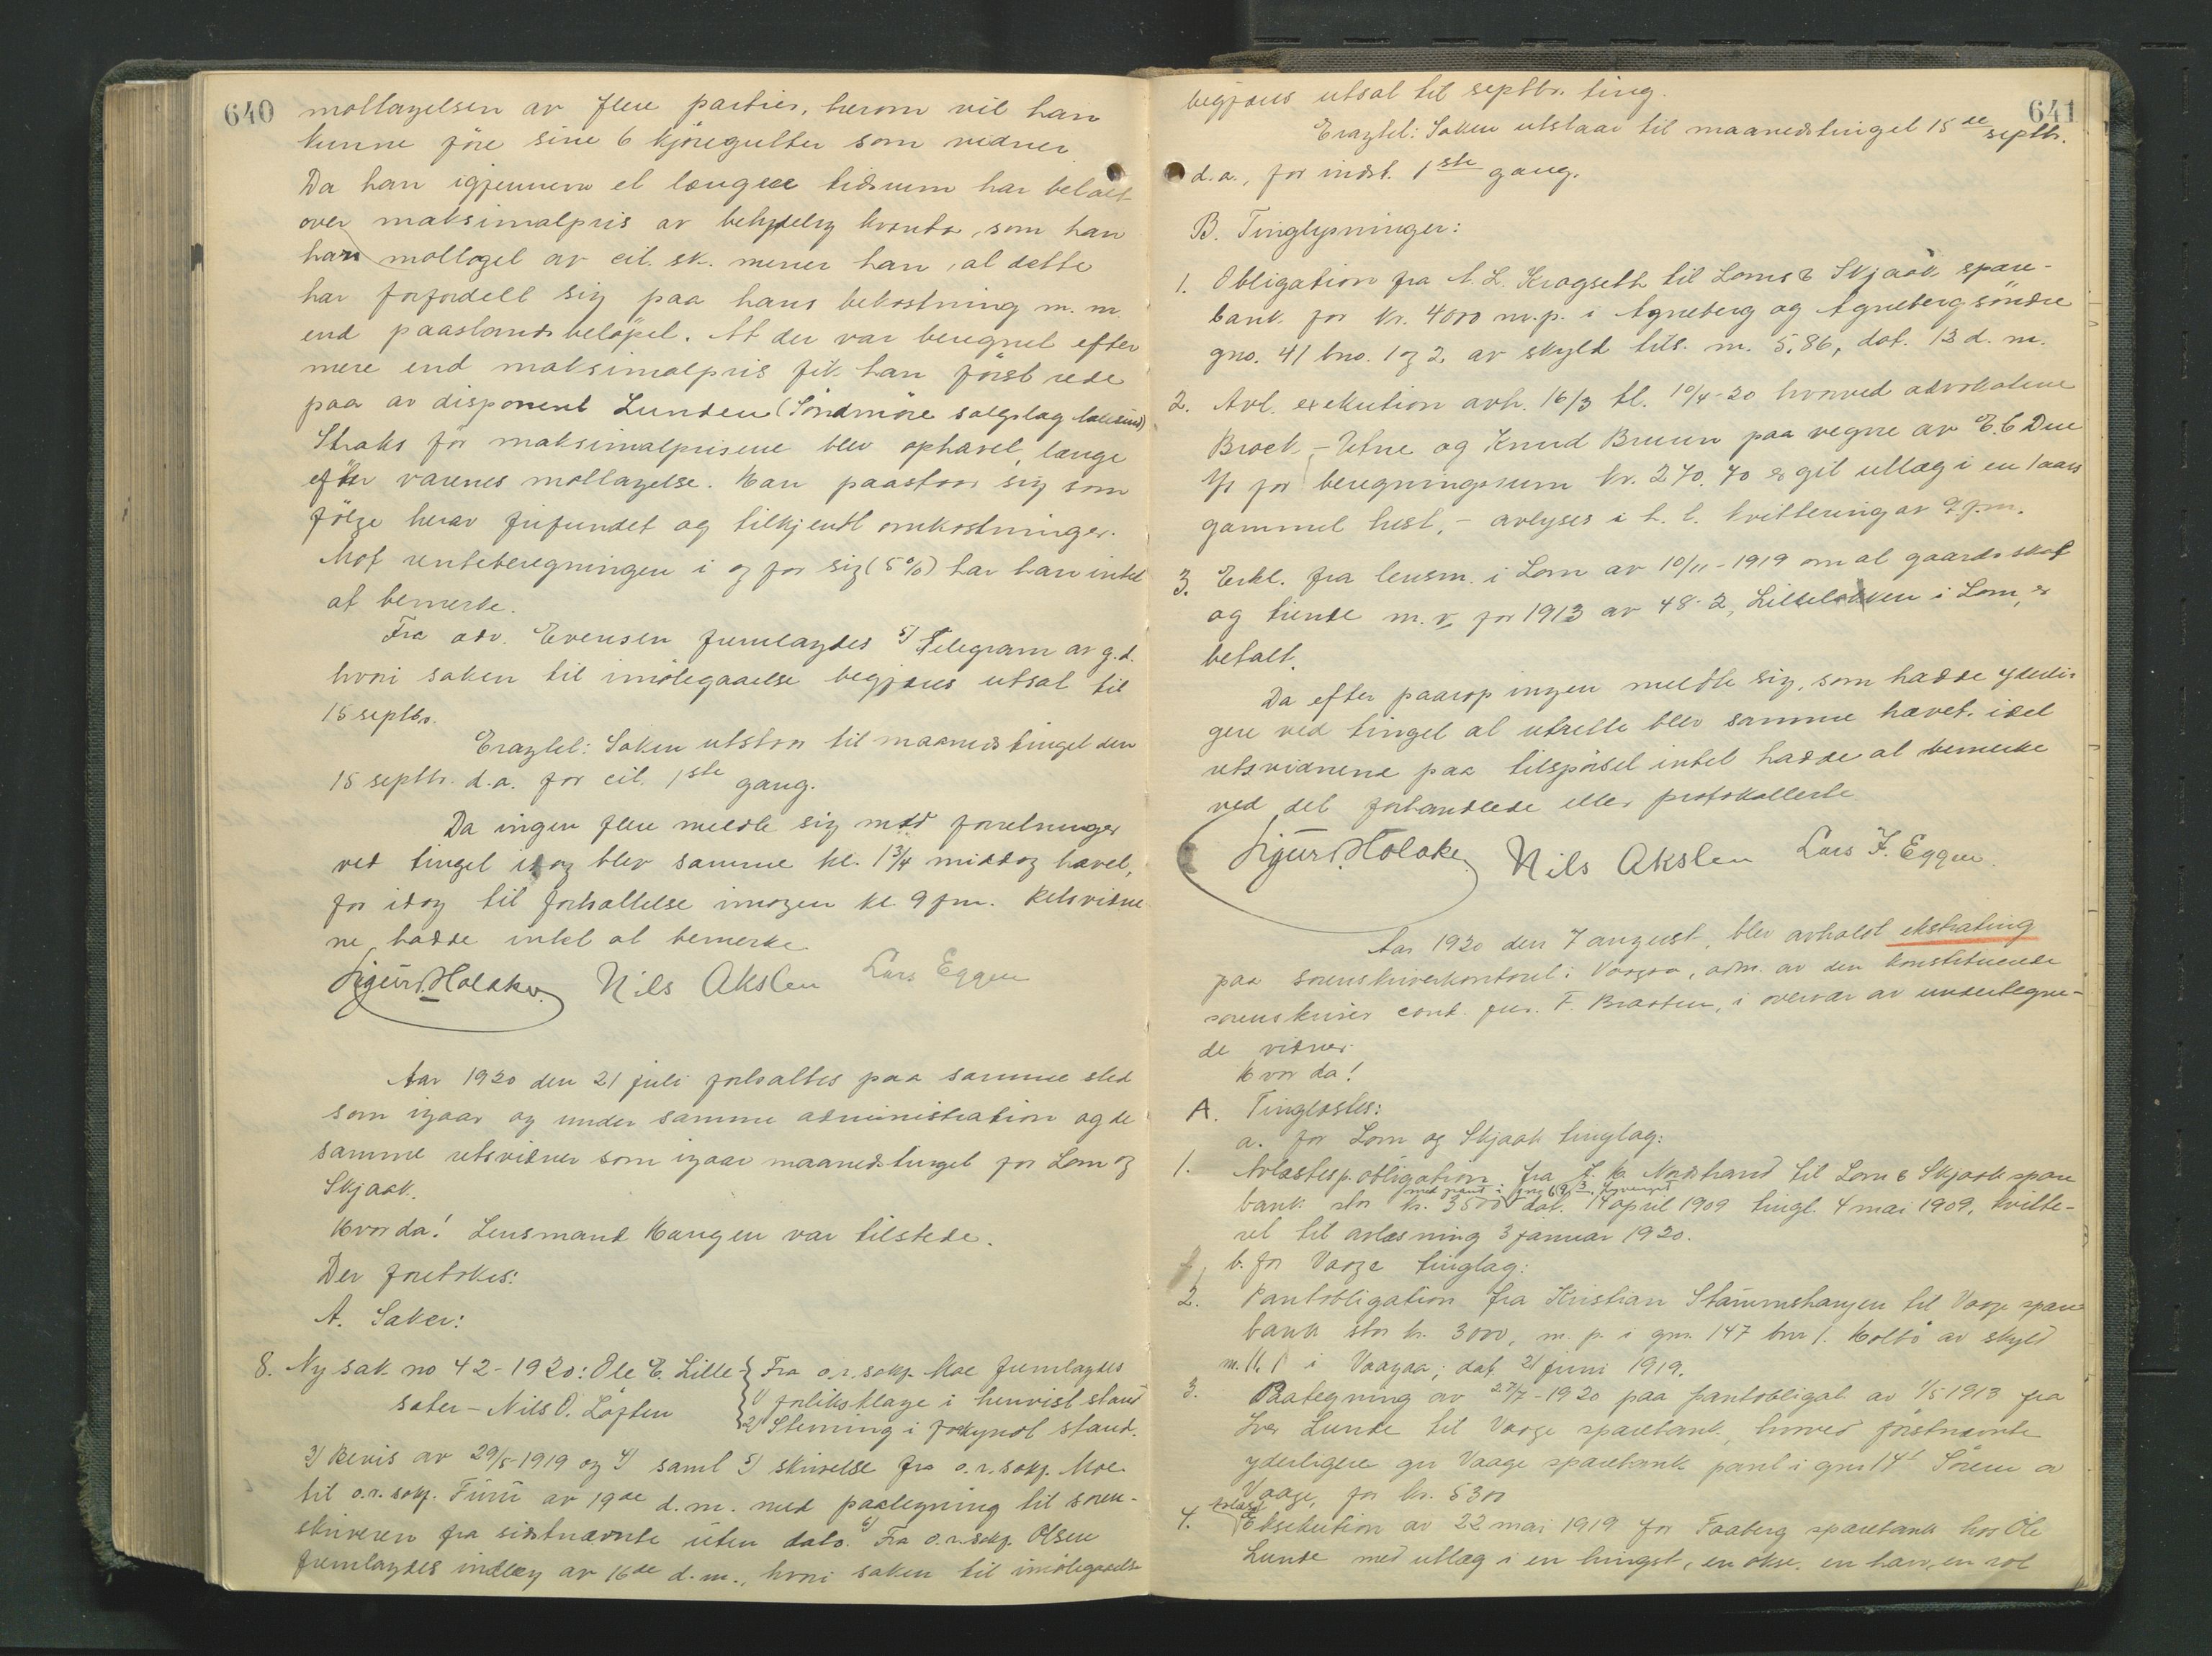 640
mottagelsen av flere partier, herom vil han
kunne føre sine 6 kjøregutter som vidner
Da han igjennem et længere tidsrum har betalt
over maksimalpris av betydelig kvanta, som han
har mottaget av cit. sk. mener han, at dette
har forfordelt sig paa hans bekostning m. m.
end paastandsbeløpet. At der var beregnet efter
mere end maksimalpris fik han først rede
paa av disponent Lunden (Søndmøre salgslag Aalesund)
Straks før maksimalprisene blev ophævet, længe
efter varenes mottagelse. Han paastaar sig som
følge herav frifundet og tilkjendt omkostninger.
Mot renteberegningen i og for sig (5%) har han intet
at bemerke.
Fra adv. Evensen fremlagdes 5) Telegram av g.d.
hvori saken til imøtegaaelse begjæres utsat til
15 septbr.
Eragtet: Saken utstaar til maanedstinget den
15 septbr. d.a. for cit. 1ste gang.
Da ingen flere meldte sig med forretninger
ved tinget idag blev samme kl. 1¾ middag hævet,
for idag til fortsættelse imorgen kl 9 fm. Retsvidne
ne hadde intet at bemerke
Sigurd Holaker Nils Akslen Lars Eggen
Aar 1920 den 21 juli fortsattes paa samme sted
som igaar og under samme administration og de
samme retsvidner som igaar maanedstinget for Lom og
Skjaak.
Hvorda! Lensmand Haugen var tilstede.
Der foretokes:
A. Saker:
8. Ny sak no 42-1920: Ole E. Lille- Fra o.r.sakf. Moe fremlagdes
sæter - Nils O. Løften 1) forliksklage i henvist stand
2) Stevning i forkyndt stand.
3) Bevis av 29/5-1919 og 4) samt 5) skrivelse fra o.r.sakf. Moe
til o.r.sakf. Furu av 19de d.m. med paategning til soren-
skriveren fra sidstnævnte uten dato. 6) Fra o.r.sakf. Olsen
fremlagdes indlæg av 16de d.m., hvori saken til imøtegaaelse
641
begjæres utsat til septbr. ting.
Eragtet: Saken utstaar til maanedstinget 15de septbr.
d.a., for indst. 1ste gang.
B. Tinglysninger:
1. Obligation fra A. L. Kragseth til Lom & Skjaak spare-
bank for kr. 4000 m.p. i Agneberg og Agneberg søndre
gno. 41 bno. 1 og 2. av skyld tils. m. 5,86, dat. 13 d. m.
2. Avl. exekution avh. 16/3 tl. 10/4-20 hvorved advokatene
Brock-Utne og Knud Bruun paa vegne av E. C Due
A/s for beregningssum kr. 270.70 er git utlæg i en 1 aars
gammel hest, - avlyses i h. t. kvittering av
3. Erkl. fra lensm. i Lom av 10/11-1919 om at gaardsskat
og tiende m. v. for 1913 av 48-2, Lilleløkken i Lom, er
betalt.
Da efter paarop ingen meldte sig, som hadde yderli
gere ved tinget at utrette blev samme hævet, idet
retsvidnene paa tilspørsel intet hadde at bemerke
ved det forhandlede eller protokollerte
Sigurd Holaker Nils Akslen Lars F. Eggen.
Aar 1920 den 7 august, blev avholdt ekstrating
paa sorenskriverkontoret i Vaagaa, adm. av den konstituerede
sorenskriver cand. jur. F. Braaten, i overvær av undertegne-
de vidner.
Hvorda!
A. Tinglæstes:
a. for Lom og Skjaak tinglag:
1. Avlæstes p. obligation fra J. H. Nordstrand til Lom & Skjaak spare
med pant i gno 69
bank stor kr. 3500 dat. 14 april 1909 tingl. 4 mai 1909, kvitte-
ret til avlæsning 3 januar 1920.
b. for Vaage tinglag:
2. Pantobligation fra Kristian Stamnshaugen til Vaage spare
bank stor kr. 3000, m. p. i gnr. 147 bnr 1. Holbø av skyld
m. 11.1 i Vaagaa; dat. 21 juni 1919.
3. Paategning av 27/7-1920 paa pantobligat. av 1/5 1913 fra
Iver Lunde til Vaage sparebank, hvorved førstnævnte
yderligere gir Vaage sparebank pant i gnr 14
Vaage, for kr. 5300
avlæst
4. Eksekution av 22 mai 1919 for Faaberg sparebank hos Ole
Lunde med utlæg i en hingst, en okse, en harv, en